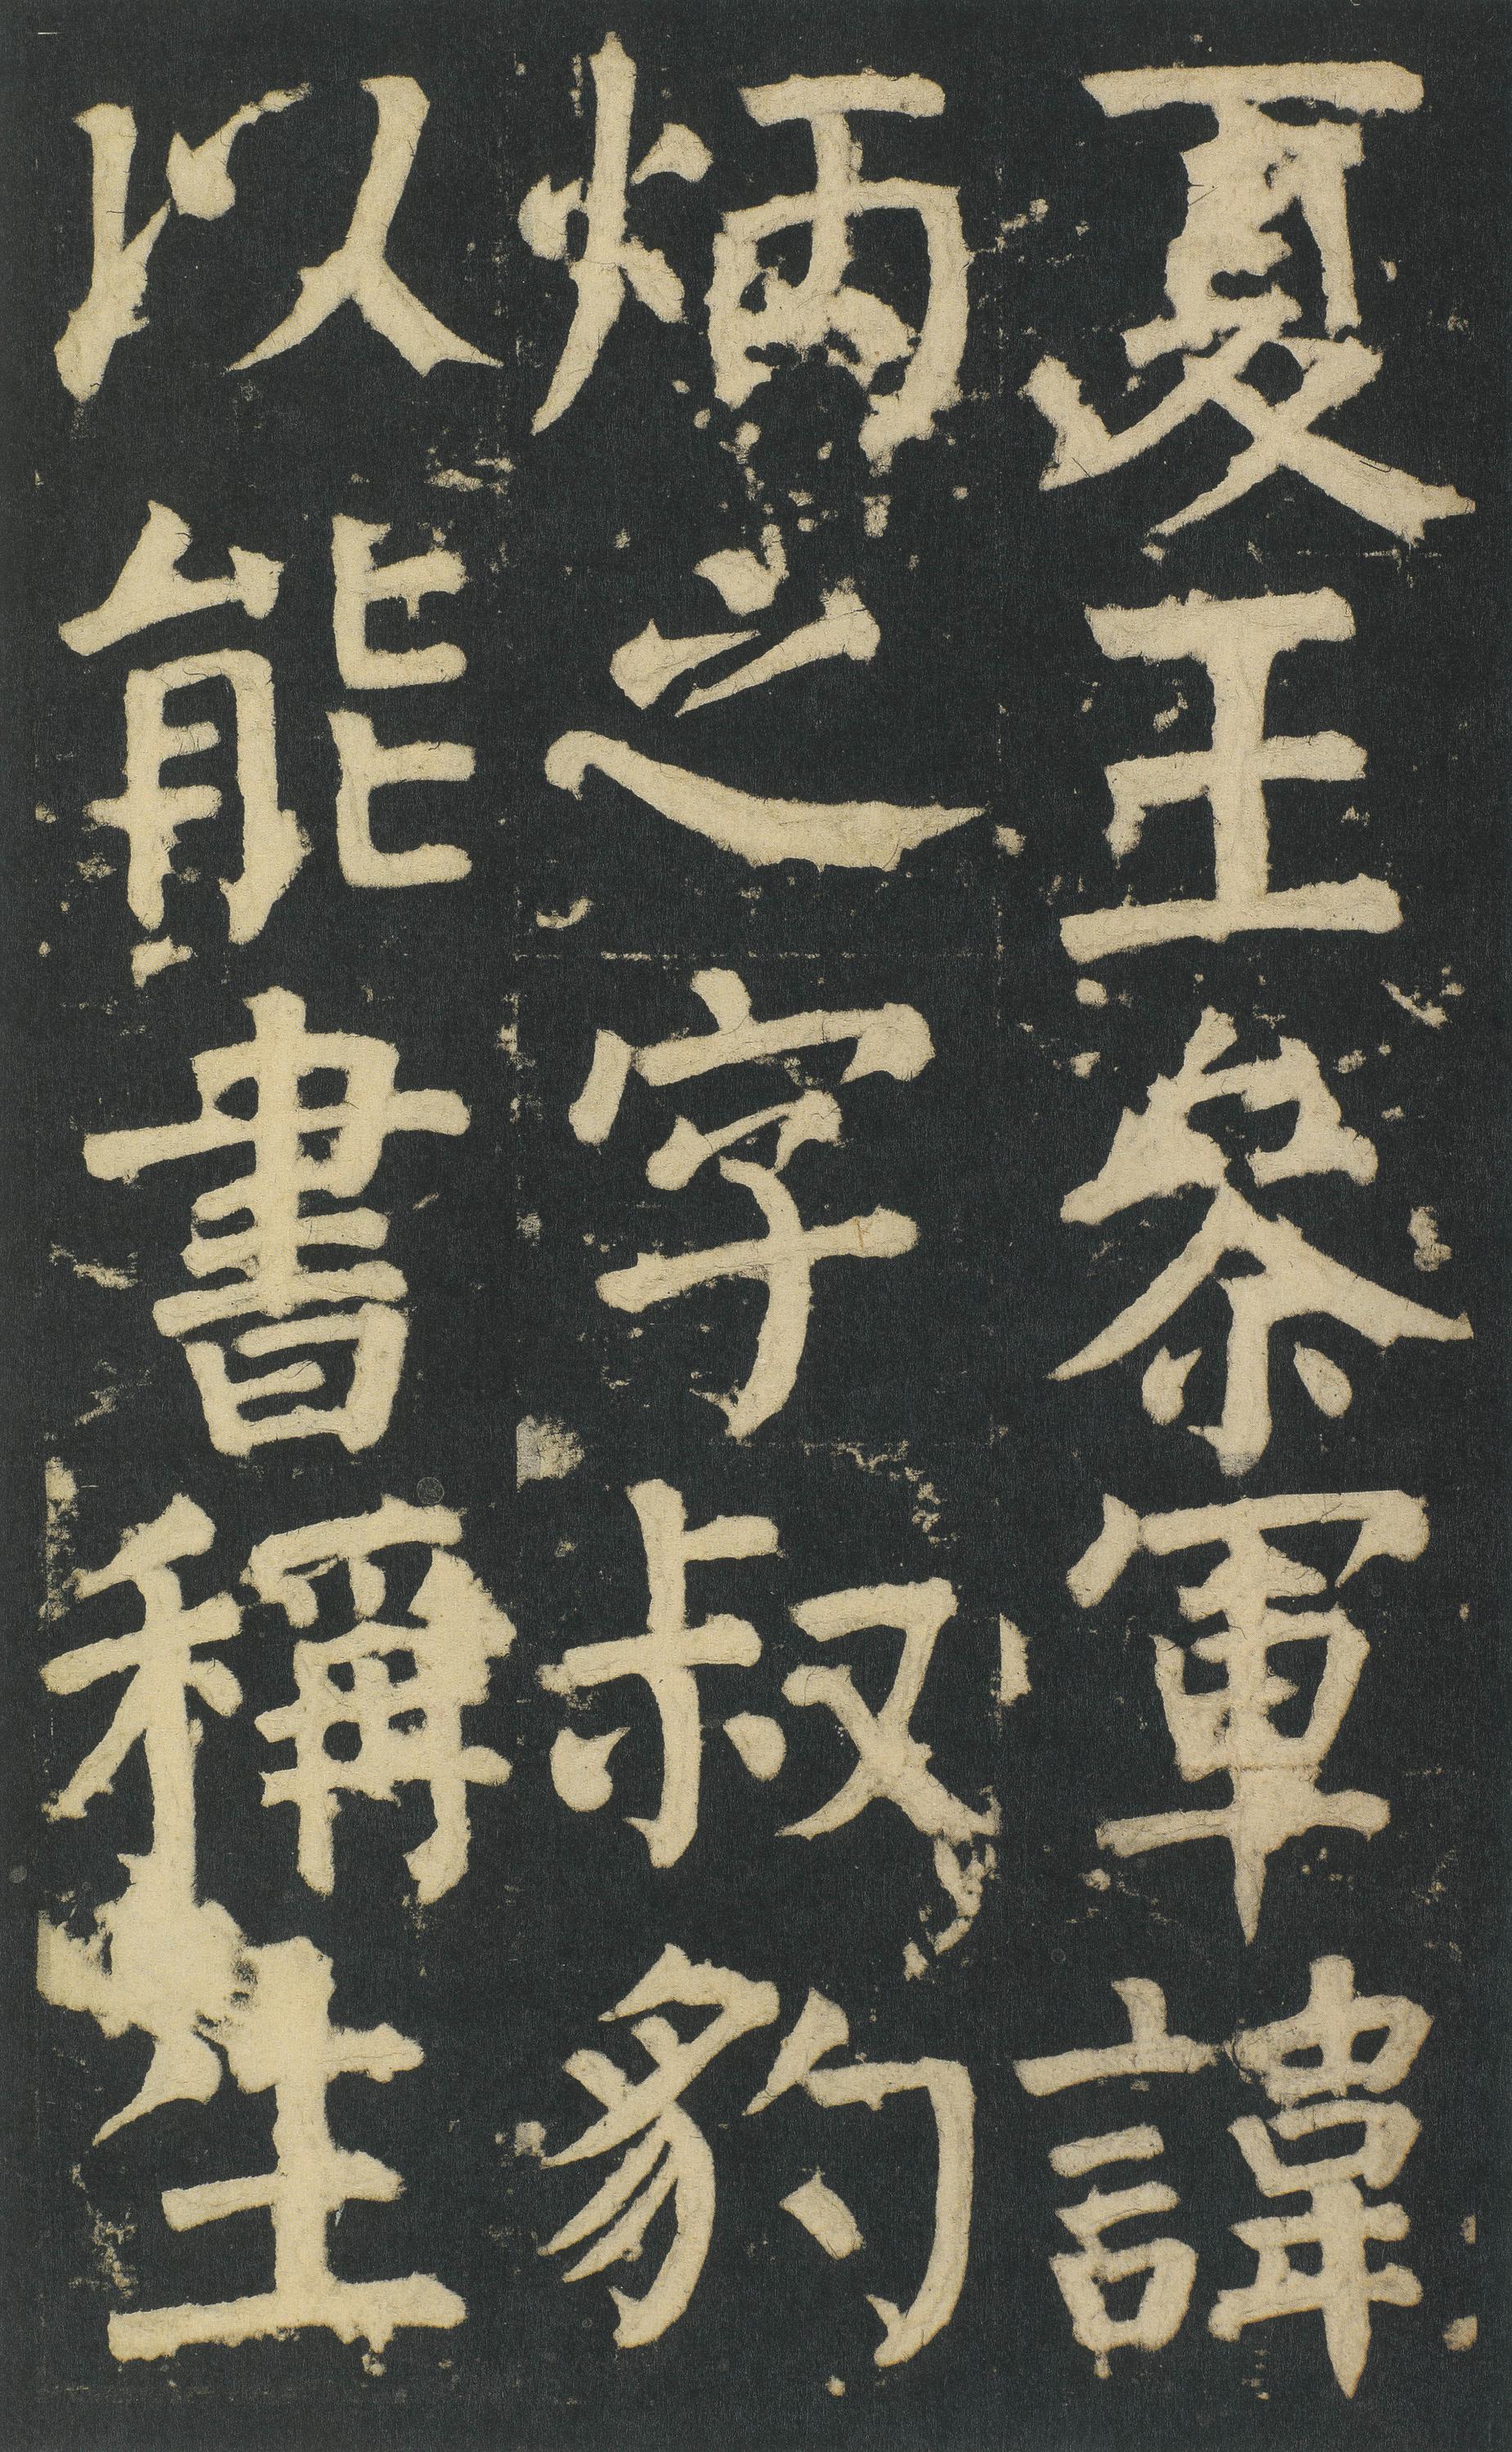 夏王叅軍諱
炳之字叔豹
以能書稱生